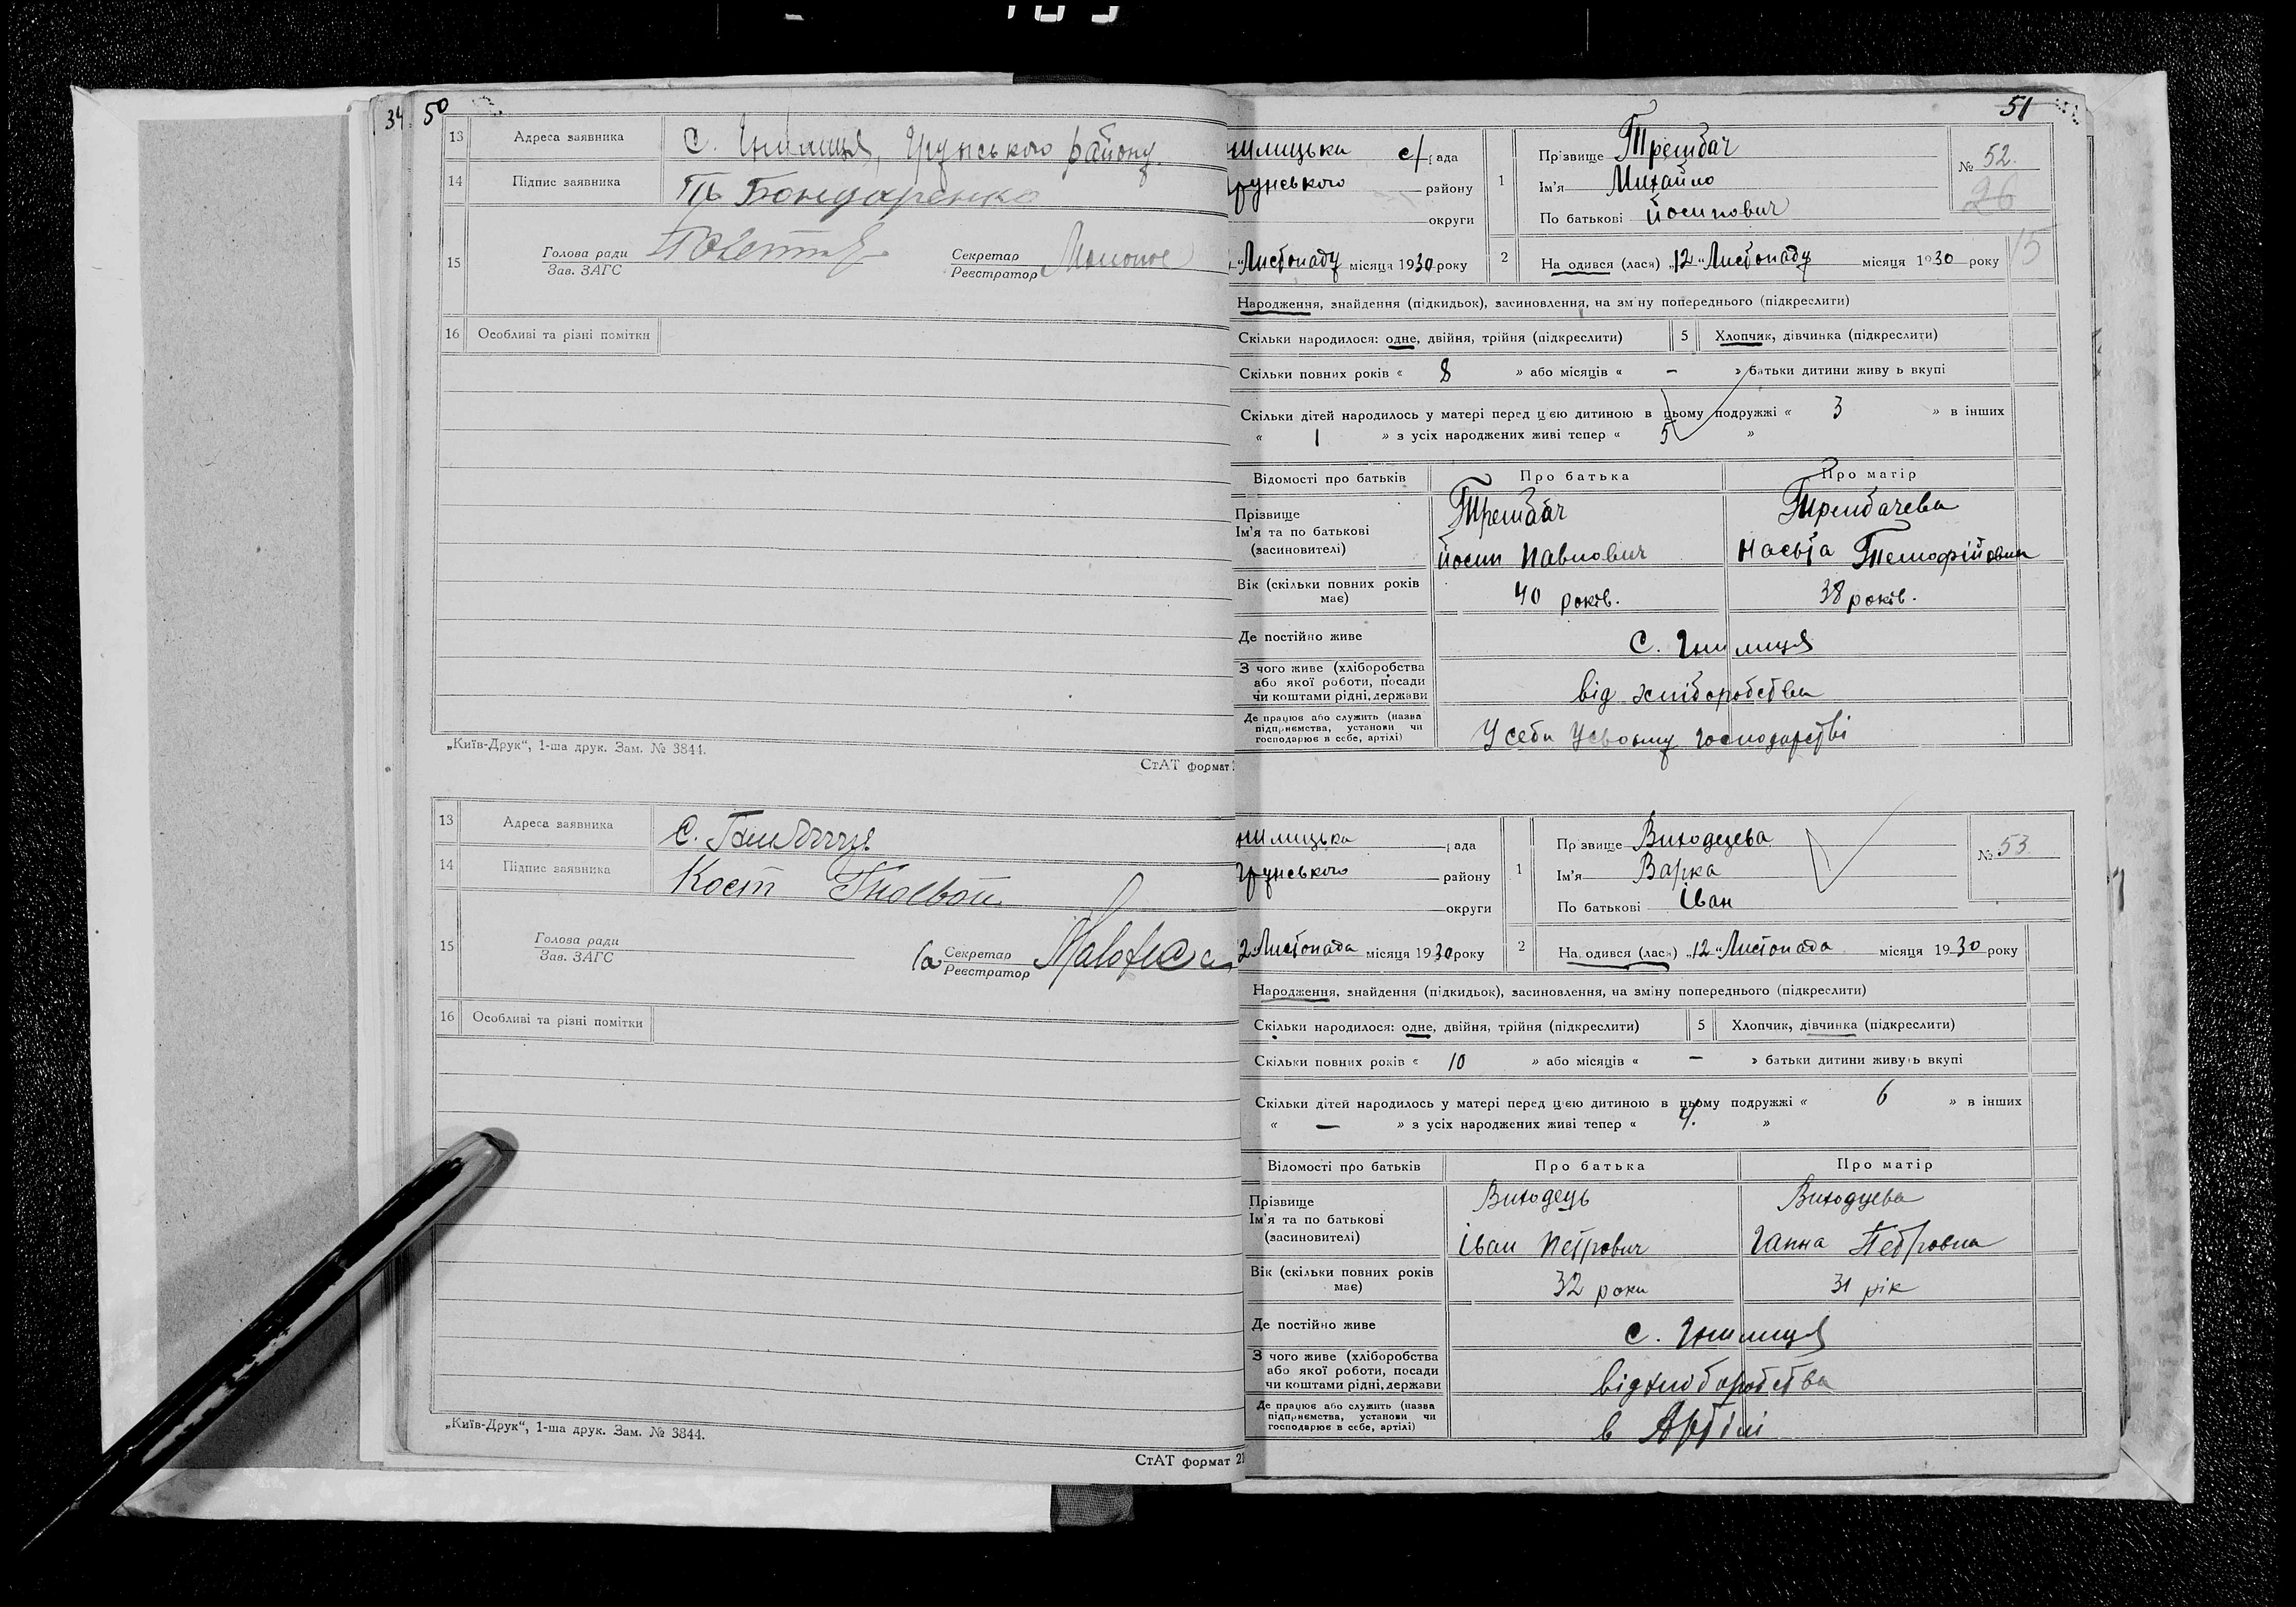 34 50
13 Адреса заявника С. Гнилиця, Грунського району.
14 Підпис заявника Бондаренко
15 Голова ради
Зав. ЗАГС
Секретар
Реєстратор
16 Особливі та різні помітки
„Київ-Друк“, 1-ша друк. Зам. № 3844.
СтАТ формат
13 Адреса заявника С.
14 Підпис заявника Кост Гноєвой
15 Голова ради
Зав. ЗАГС
Секретар
Реєстратор
16 Особливі та різні помітки
„Київ-Друк“, 1-ша друк. Зам. № 3844.
СтАТ формат 21
51
нилицька с/рада
Грунського району
округи
Листопаду місяця 1930 року
1 Прізвище Трембач
Ім'я Михайло
По батькові Йосипович
№ 52.
26
2 Народився (лася) „12“ Листопаду місяця 1930 року
15
Народження, знайдення (підкидьок), засиновлення, на зміну попереднього (підкреслити)
Скільки народилося: одне, двійня, трійня (підкреслити) 5 Хлопчик, дівчинка (підкреслити)
Скільки повних років « 8 » або місяців « – » батьки дитини живуть вкупі
Скільки дітей народилось у матері перед цією дитиною в цьому подружжі « 3 » в інших
« 1 » з усіх народжених живі тепер « 5 »
Відомості про батьків Про батька Про матір
Прізвище Трембач Трембачева
Ім'я та по батькові Йосип Павлович Насьтя Тимофійовна
(засиновителі)
Вік (скільки повних років має) 40 років. 38 років.
Де постійно живе С. Гнилиця
З чого живе (хліборобства
або якої роботи, посади
чи коштами рідні, держави від хліборобства
Де працює або служить (назва
підприємства, установи чи
господарює в себе, артілі) У себи у своєму господарстві
нилицька рада
Грунського району
округи
2 Листопада місяця 1930 року
1 Прізвище Виходецева
Ім'я Варка
По батькові Іван
№ 53.
2 Народився (лася) „12“ Листопада місяця 1930 року
Народження, знайдення (підкидьок), засиновлення, на зміну попереднього (підкреслити)
Скільки народилося: одне, двійня, трійня (підкреслити) 5 Хлопчик, дівчинка (підкреслити)
Скільки повних років « 10 » або місяців « – » батьки дитини живуть вкупі
Скільки дітей народилось у матері перед цією дитиною в цьому подружжі « 6 » в інших
« – » з усіх народжених живі тепер « 4. »
Відомості про батьків Про батька Про матір
Прізвище Виходець Виходцева
Ім'я та по батькові Іван Петрович Ганна Петровна
(засиновителі)
Вік (скільки повних років має) 32 роки 31 рік
Де постійно живе с. Гнилиця
З чого живе (хліборобства
або якої роботи, посади
чи коштами рідні, держави від хліборобства
Де працює або служить (назва
підприємства, установи чи
господарює в себе, артілі) в Артілі